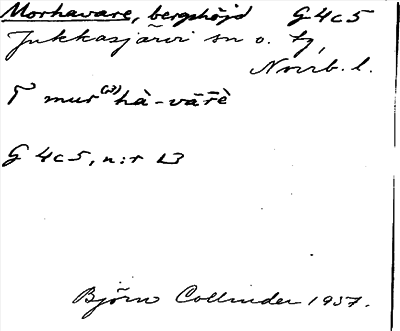 Morhavare, bergshöjd G 4c5
Jukkasjärvi sn o. tg,
Norrb. l.
mur⁽ω⁾hà-vārè
G 4c5, n:r
Björn Collinder 1937.